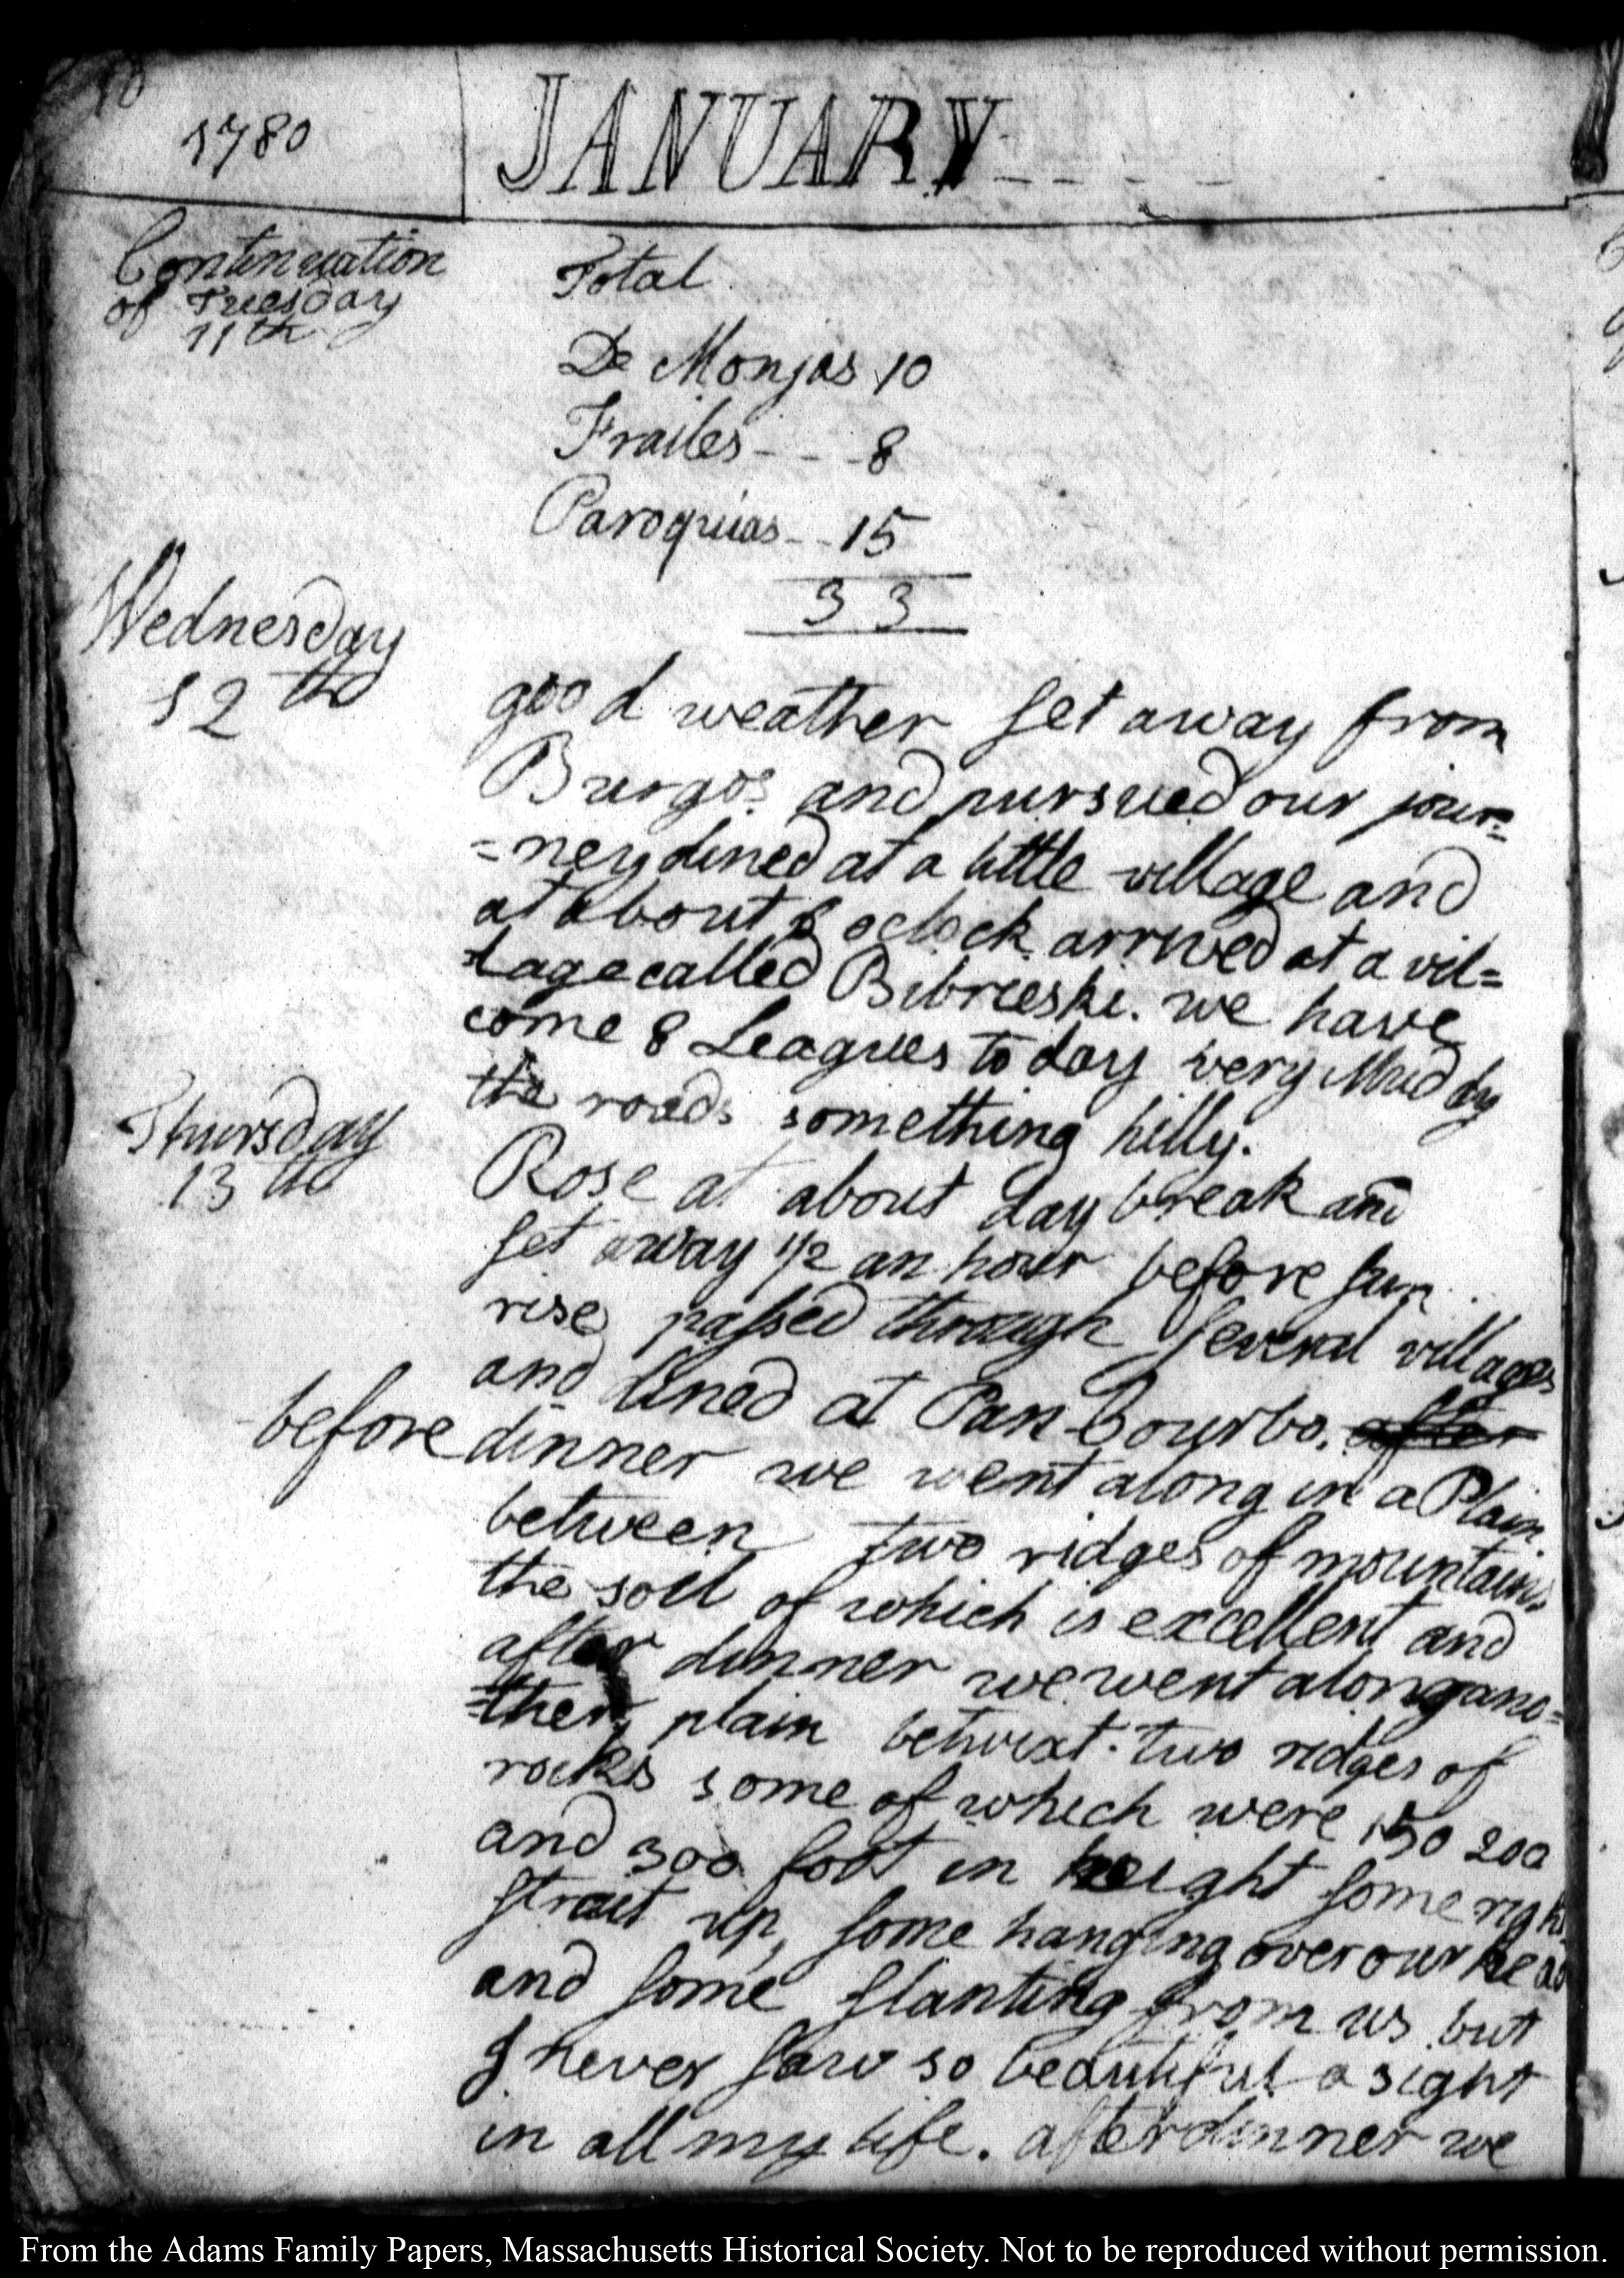 10
1780
JANUARY - - - -
Continuation
of Tuesday
11th
Total
De Monjas 10
Frailes - - - 8
Paroquias - - 15
33
Wednesday
12th
good weather set away from
Burgos and pursued our jour=
=ney dined at a little village and
at about 8 oclock arrived at a vil=
=lage called Bibrieski. we have
come 8 Leagues to day very Muddy
the roads something hilly.
Thursday
13th
Rose at about day break and
set away 1/2 an hour before sun
rise passed through several villages
and dined at Pan Courbo. after
before dinner we went along in a Plain
between two ridges of mountains
the soil of which is excellent and
after dinner we went along ano=
=ther plain betwixt two ridges of
rocks some of which were 150 200
and 300 foot in height some right
strait up, some hanging over our head
and some slanting from us but
I never saw so beautiful a sight
in all my life. after dinner we
From the Adams Family Papers, Massachusetts Historical Society. Not to be reproduced without permission.